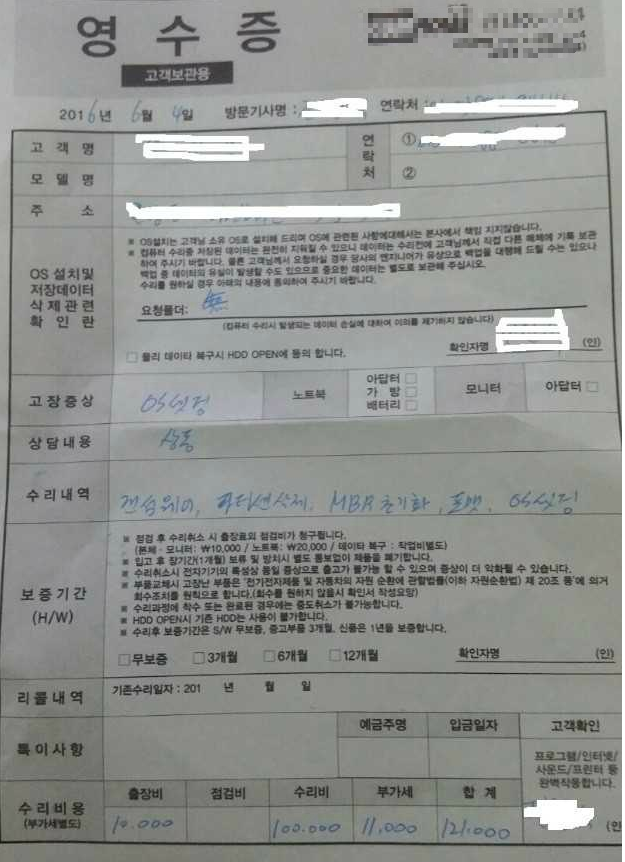 영 수 증
고객보관용
2016년 6월 4일 방문기사명 : 연락처 :
고 객 명
연락처
①
모 델 명
②
주 소
OS 설치및
저장데이터
삭제관련
확 인 란
※ OS설치는 고객님 소유 OS로 설치해 드리며 OS에 관련된 사항에대해서는 본사에서 책임 지지않습니다.
※ 컴퓨터 수리중 저장된 데이터는 완전히 지워질 수 있으니 데이터는 수리전에 고객님께서 직접 다른 매체에 기록 보관
하여 주시기 바랍니다. 물론 고객님께서 요청하실 경우 당사의 엔지니어가 유상으로 백업을 대행해 드릴 수는 있으나
백업 중 데이터의 유실이 발생할 수도 있으므로 중요한 데이터는 별도로 보관해 주십시오.
수리를 원하실 경우 아래의 내용에 동의하여 주시기 바랍니다.
요청폴더: 無
(컴퓨터 수리시 발생되는 데이터 손실에 대하여 이의를 제기하지 않습니다)
확인자명 (인)
□ 물리 데이타 복구시 HDD OPEN에 동의 합니다.
고장증상 OS셋팅 노트북
아답터 □
가 방 □
배터리 □
모니터 아답터 □
상담내용 상동
수리내역 랜섬웨어, 파티션삭제, MBR 초기화, 포맷, OS셋팅
보증기간
(H/W)
※ 점검 후 수리취소 시 출장료외 점검비가 청구됩니다.
(본체 · 모니터: ₩10,000 / 노트북: ₩20,000 / 데이타 복구 : 작업비별도)
※ 입고 후 장기간(1개월) 보류 및 방치시 별도 통보없이 제품을 폐기합니다.
※ 수리취소시 전자기기의 특성상 동일 증상으로 출고가 불가능 할 수 있으며 증상이 더 악화될 수 있습니다.
※ 부품교체시 고장난 부품은 '전기전자제품 및 자동차의 자원 순환에 관할법률(이하 자원순환법) 제 20조 동'에 의거
회수조치를 원칙으로 합니다.(회수를 원하지 않을시 확인서 작성요망)
※ 수리과정에 착수 또는 완료된 경우에는 중도취소가 불가능합니다.
※ HDD OPEN시 기존 HDD는 사용이 불가합니다.
※ 수리후 보증기간은 S/W 무보증, 중고부품 3개월, 신품은 1년을 보증합니다.
□무보증 □3개월 □6개월 □12개월 확인자명 (인)
리콜내역 기존수리일자 : 201 년 월 일
특이사항 예금주명 입금일자 고객확인
프로그램/인터넷/
사운드/프린터 등
완벽작동합니다.
(인
수리비용
(부가세별도)
출장비 점검비 수리비 부가세 합 계
10.000 100.000 11,000 121.000